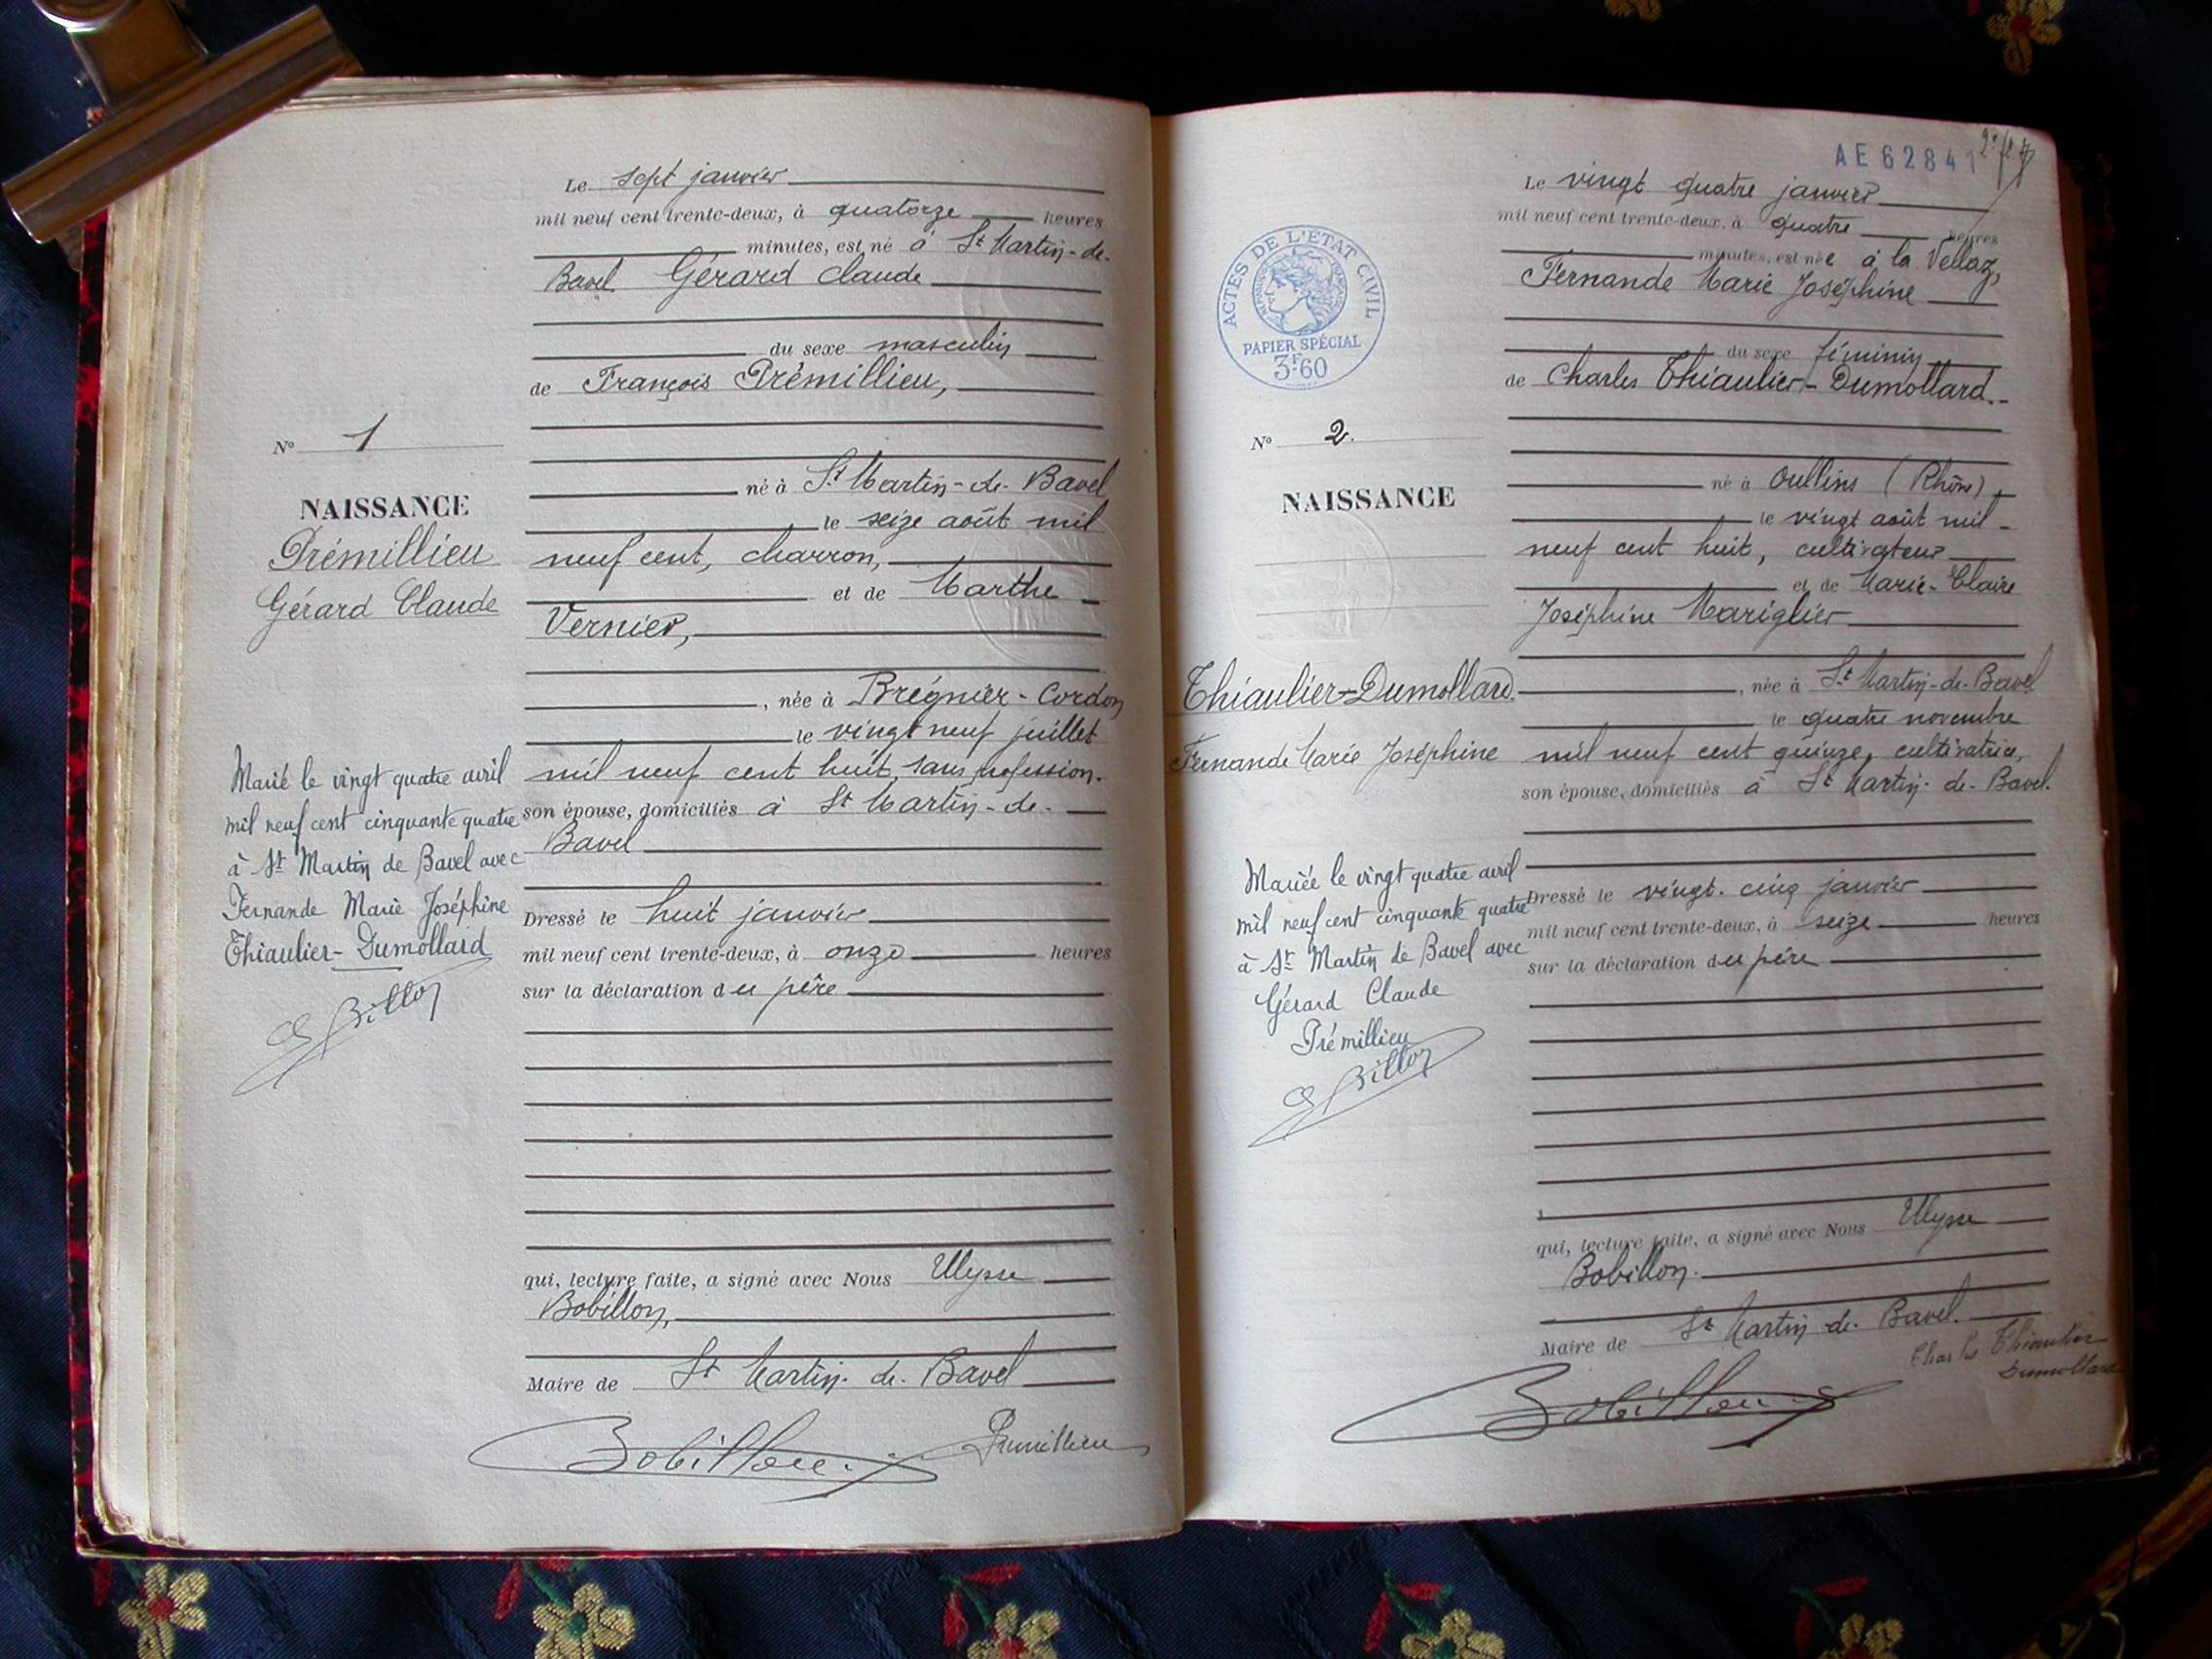 Le sept janvier
mil neuf cent trente-deux, à quatorze heures
minutes, est né à St Martin-de-
Bavel Gérard Claude
du sexe masculin
de François Prémillieu,
No 1
né à St Martin-de-Bavel
NAISSANCE
le seize août mil
Prémillieu
neuf cent, charron,
Gérard Claude
et de Marthe
Vernier,
, née à Brégnier-Cordon
le vingt neuf juillet
mil neuf cent huit, sans profession.
son épouse, domiciliés à St Martin-de-
Bavel
Marié le vingt quatre avril
mil neuf cent cinquante quatre
à St Martin de Bavel avec
Fernande Marie Joséphine
Thiaulier-Dumollard
Dressé le huit janvier
mil neuf cent trente-deux, à onze heures
sur la déclaration du père
qui, lecture faite, a signé avec Nous Ulysse
Bobillon,
Maire de St Martin-de-Bavel
Bobillon
Prémillieu
AE62841
Le vingt quatre janvier
mil neuf cent trente-deux, à quatre heures
minutes, est née à la Vellaz,
Fernande Marie Joséphine
ACTES DE L'ÉTAT CIVIL
PAPIER SPÉCIAL
3F60
du sexe féminin
de Charles Thiaulier-Dumollard.-
No 2.
né à Oullins (Rhône)
NAISSANCE
le vingt août mil-
neuf cent huit, cultivateur
et de Marie-Claire
Joséphine Mariglier
Thiaulier-Dumollard
, née à St Martin-de-Bavel
le quatre novembre
Fernande Marie Joséphine
mil neuf cent quinze, cultivatrice,
son épouse, domiciliés à St Martin-de-Bavel.
Mariée le vingt quatre avril
mil neuf cent cinquante quatre
à St Martin de Bavel avec
Gérard Claude
Prémillieu
Dressé le vingt-cinq janvier
mil neuf cent trente-deux, à seize heures
sur la déclaration du père
qui, lecture faite, a signé avec Nous Ulysse
Bobillon.
Maire de St Martin-de-Bavel.
Charles Thiaulier
Dumollard
Bobillon